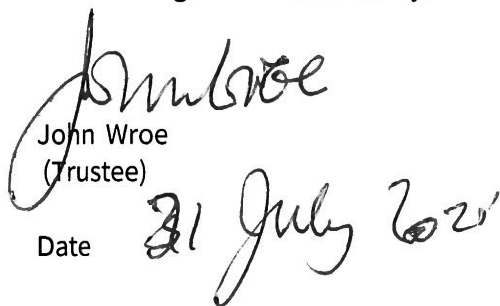 John Wroe
John Wroe
(Trustee)
Date 31 July 2021